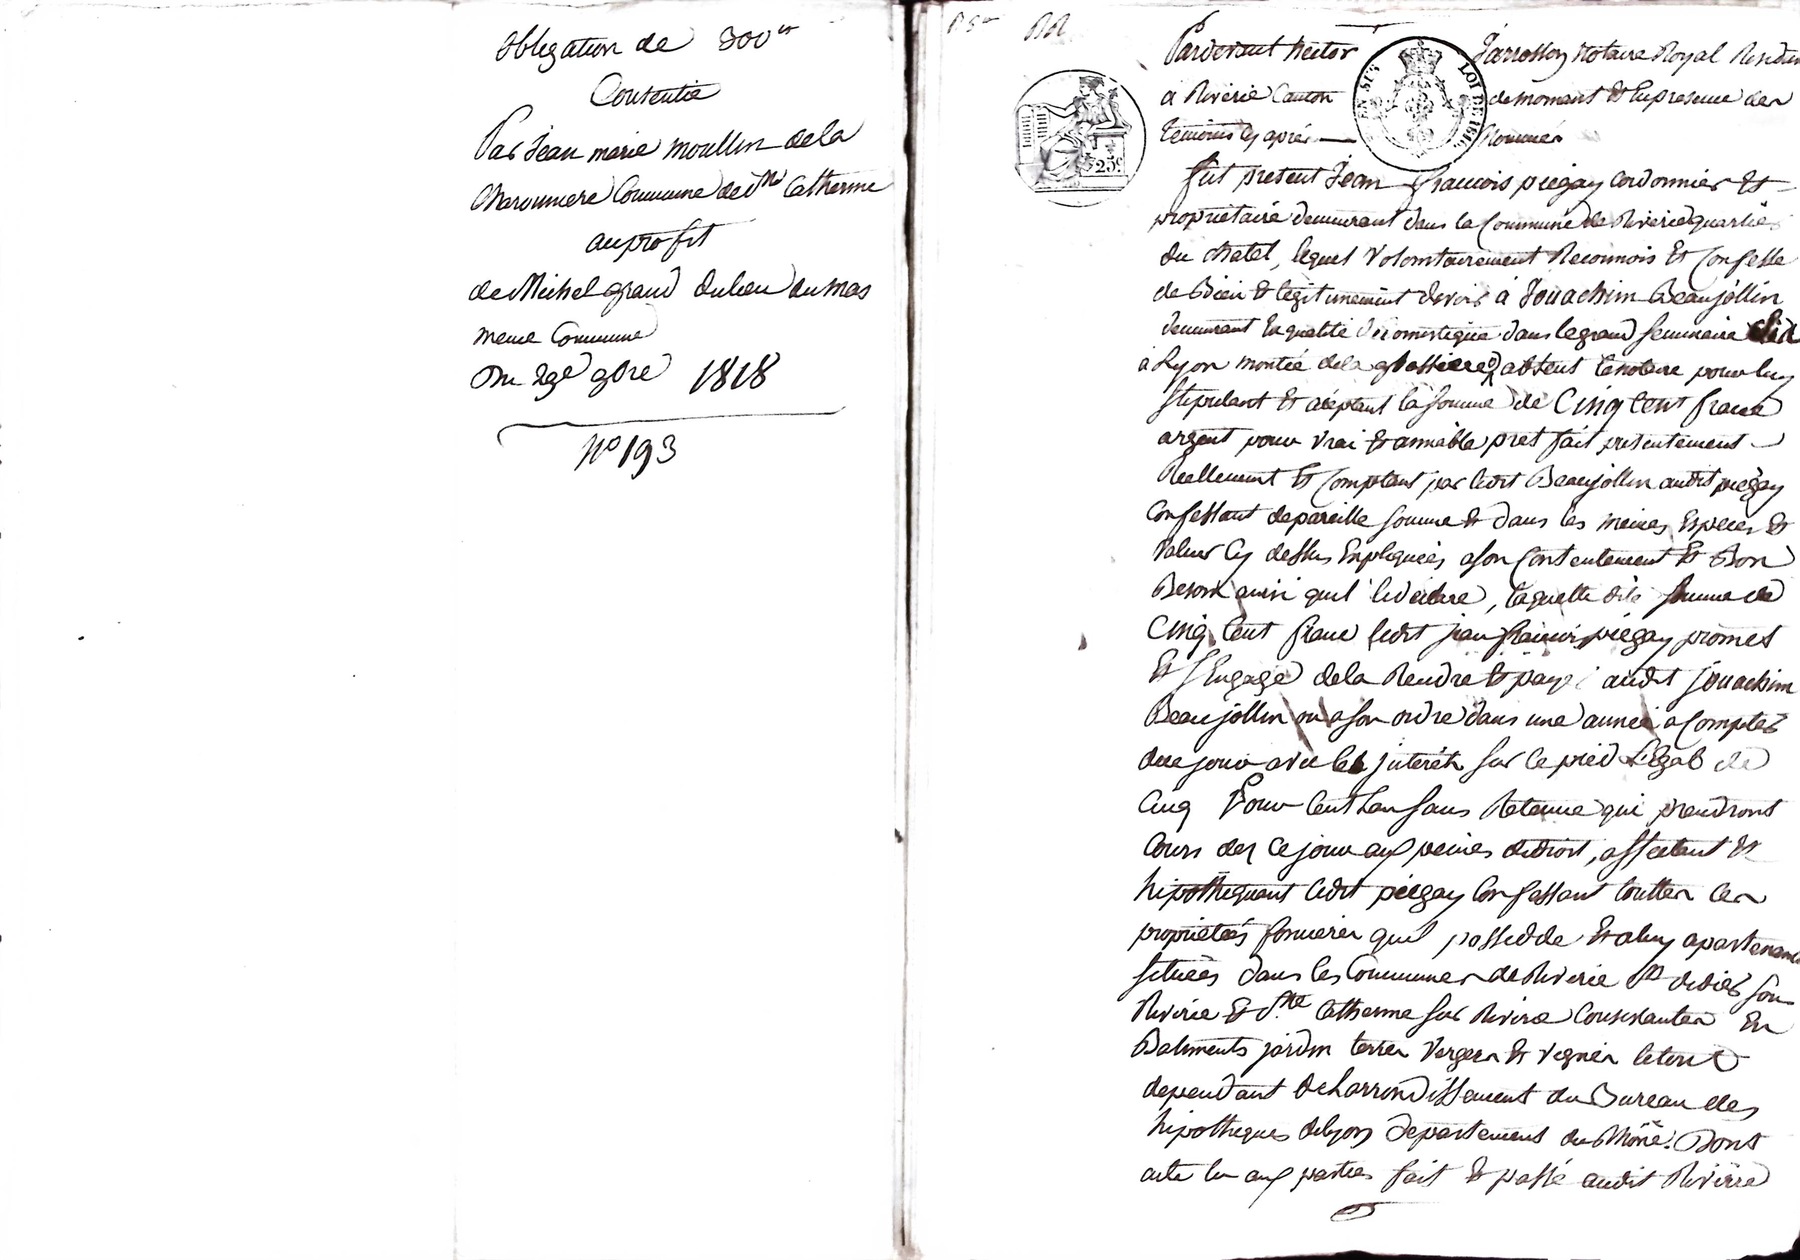 obligation de 300 lt
Consentie
Par Jean marie moullin de la
Charonniere Commune de Ste Catherine
au profit
de Michel grand du lieu du mas
meme Commune
Du 29e 9bre 1818
No 193
Pardevant hector Jarrosson Notaire Royal Residant
à Riverie Canton de mornant Et En presence des
temoins cy après Nommés
EN SUS LOI DE 1816
25c
fut present Jean françois piegay cordonnier Et
propriétaire demeurant dans la Commune de Riverie quartier
du chatel, lequel Volontairement Reconnois Et Confesse
de Bien & legitimement devoir à Jouachim Beaujollin
demeurant En qualité de domestique dans le grand Seminaire
à Lyon montée de la absent le notaire pour luy
Stipulant Et aceptant la Somme de Cinq Cent francs
argent pour vrai & amiable pret fait presentement
Reellement Et Comptant par ledit Beaujollin audit piegay
Confessant de pareille Somme & dans les meines Especes &
Valeur Cy dessus Expliquées a son Contentement Et Bon
Besoin ainsi qu'il le déclare, laquelle dite Somme de
Cinq Cent franc ledit jean françois piegay promet
Et S'Engage de la Rendre & payer audit Jouachim
Beaujollin ou a son ordre dans une année a Compter
de ce jour avec les jnterêts Sur le pied L'Egal de
Cinq Pour Cent L'an Sans Retenue qui prendront
Cours des ce jour aux peines de droit, affectant Et
hipothequant ledit piegay Confessant touttes ces
proprietées foncieres quil possedde Et a luy apartenant
Situées dans les Communes de Riverie St didier Sou
Riverie Et Ste Catherine Sur Riverie Consistantes En
Batiments jardin terres Vergers & vignes le tout
dependant de L'arrondissement du Bureau des
hipotheques de lyon Departement du Rhône. Dont
acte lu aux parties fait & passé audit Riverie